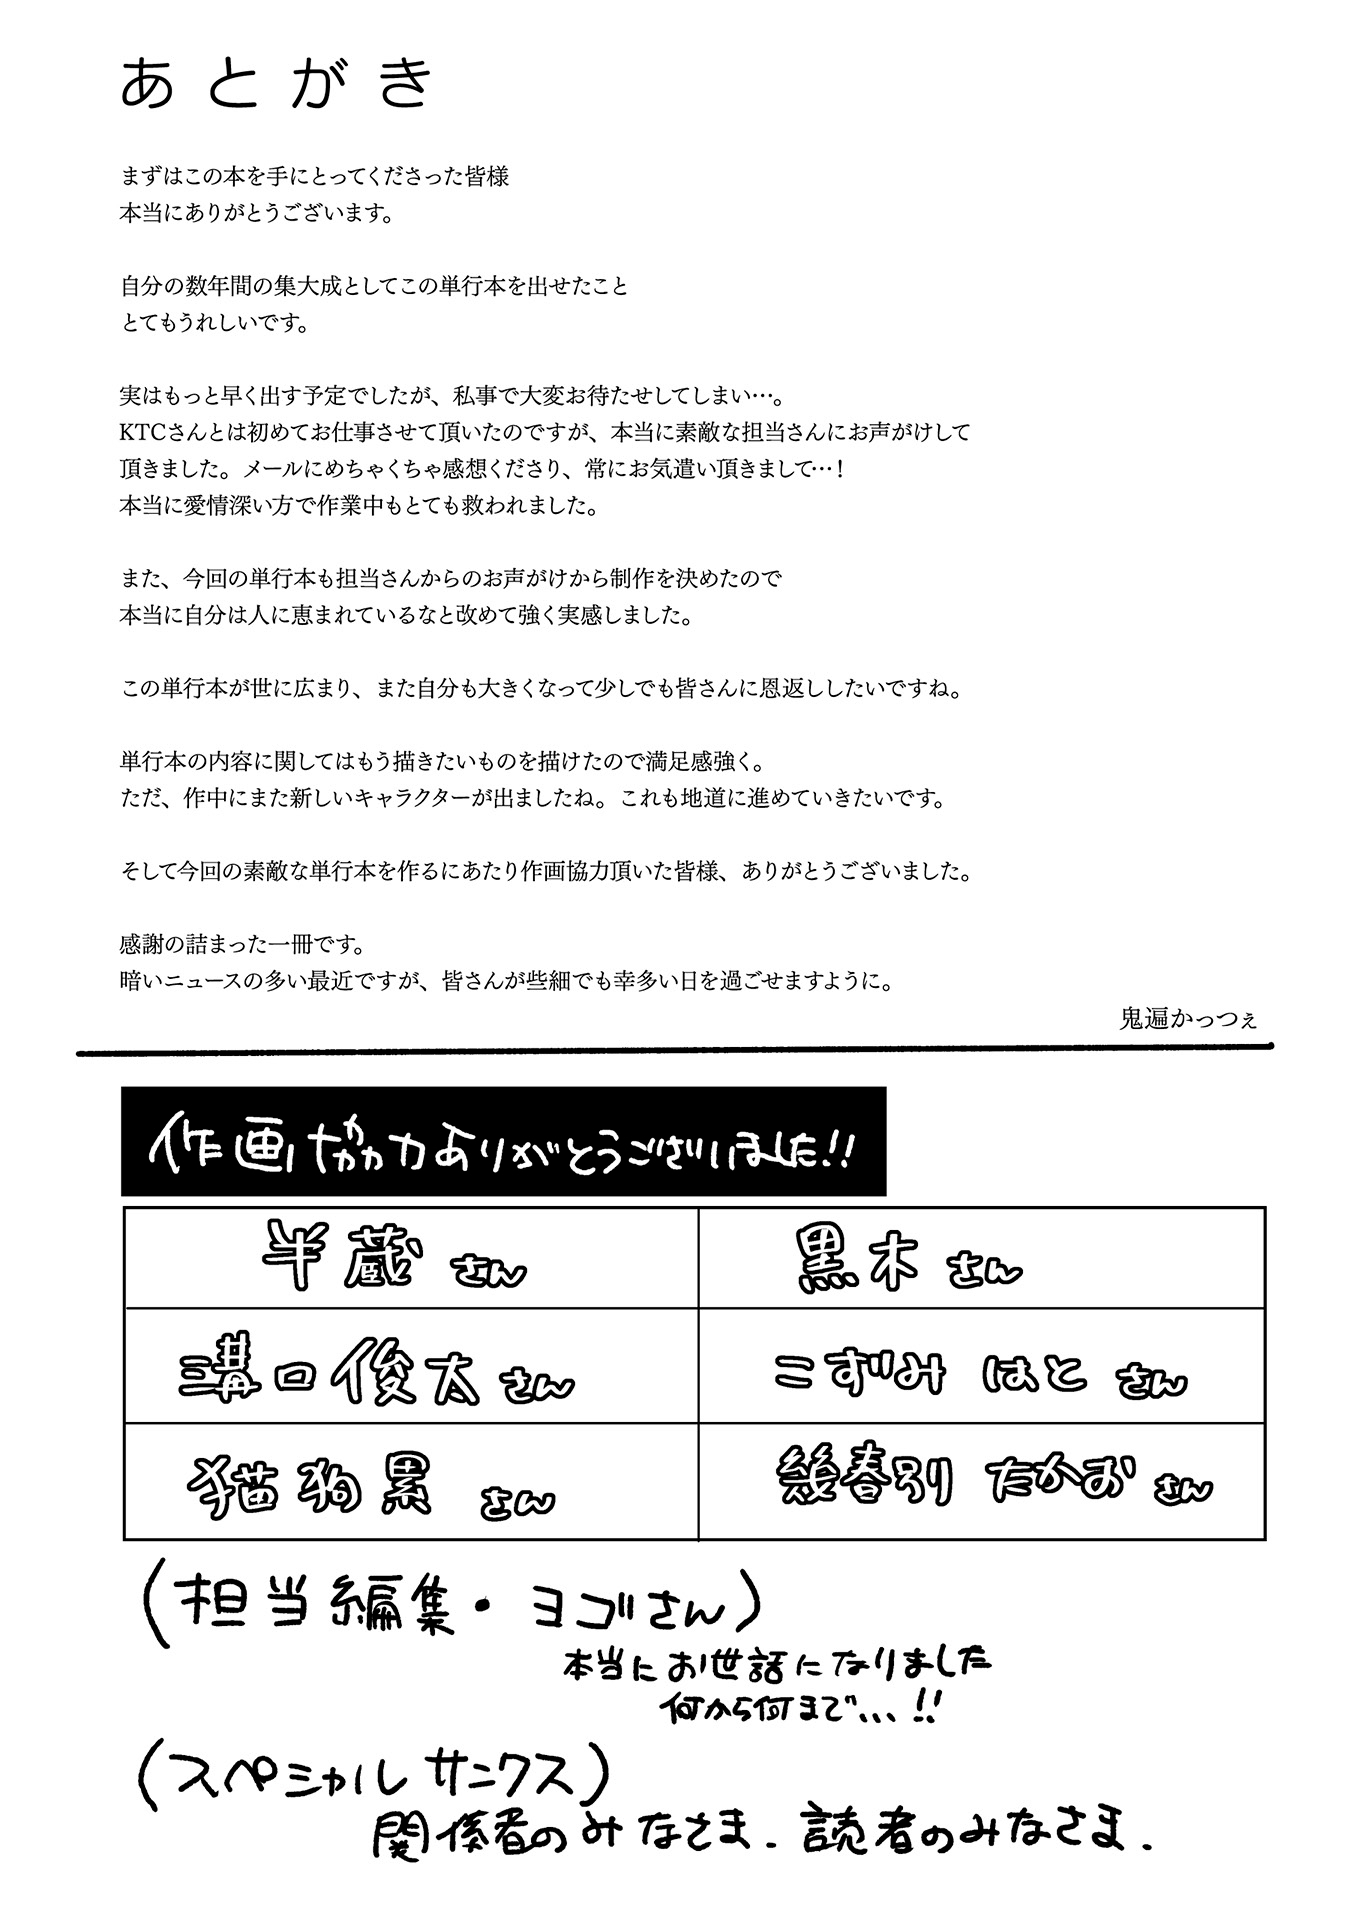 あとがき
まずはこの本を手にとってくださった皆様
本当にありがとうございます。
自分の数年間の集大成としてこの単行本を出せたこと
とてもうれしいです。
実はもっと早く出す予定でしたが、私事で大変お待たせしてしまい…。
KTCさんとは初めてお仕事させて頂いたのですが、本当に素敵な担当さんにお声がけして
頂きました。メールにめちゃくちゃ感想くださり、常にお気遣い頂きまして…！
本当に愛情深い方で作業中もとても救われました。
また、今回の単行本も担当さんからのお声がけから制作を決めたので
本当に自分は人に恵まれているなと改めて強く実感しました。
この単行本が世に広まり、また自分も大きくなって少しでも皆さんに恩返ししたいですね。
単行本の内容に関してはもう描きたいものを描けたので満足感強く。
ただ、作中にまた新しいキャラクターが出ましたね。これも地道に進めていきたいです。
そして今回の素敵な単行本を作るにあたり作画協力頂いた皆様、ありがとうございました。
感謝の詰まった一冊です。
暗いニュースの多い最近ですが、皆さんが些細でも幸多い日を過ごせますように。
鬼遍かっつぇ
作画協力ありがとうございました!!
半蔵さん
黒木さん
溝口俊太さん
こずみ はとさん
猫狗累さん
幾春別 たかおさん
(担当編集・ヨゴさん)
本当にお世話になりました
何から何まで...!!
(スペシャルサンクス)
関係者のみなさま.読者のみなさま.